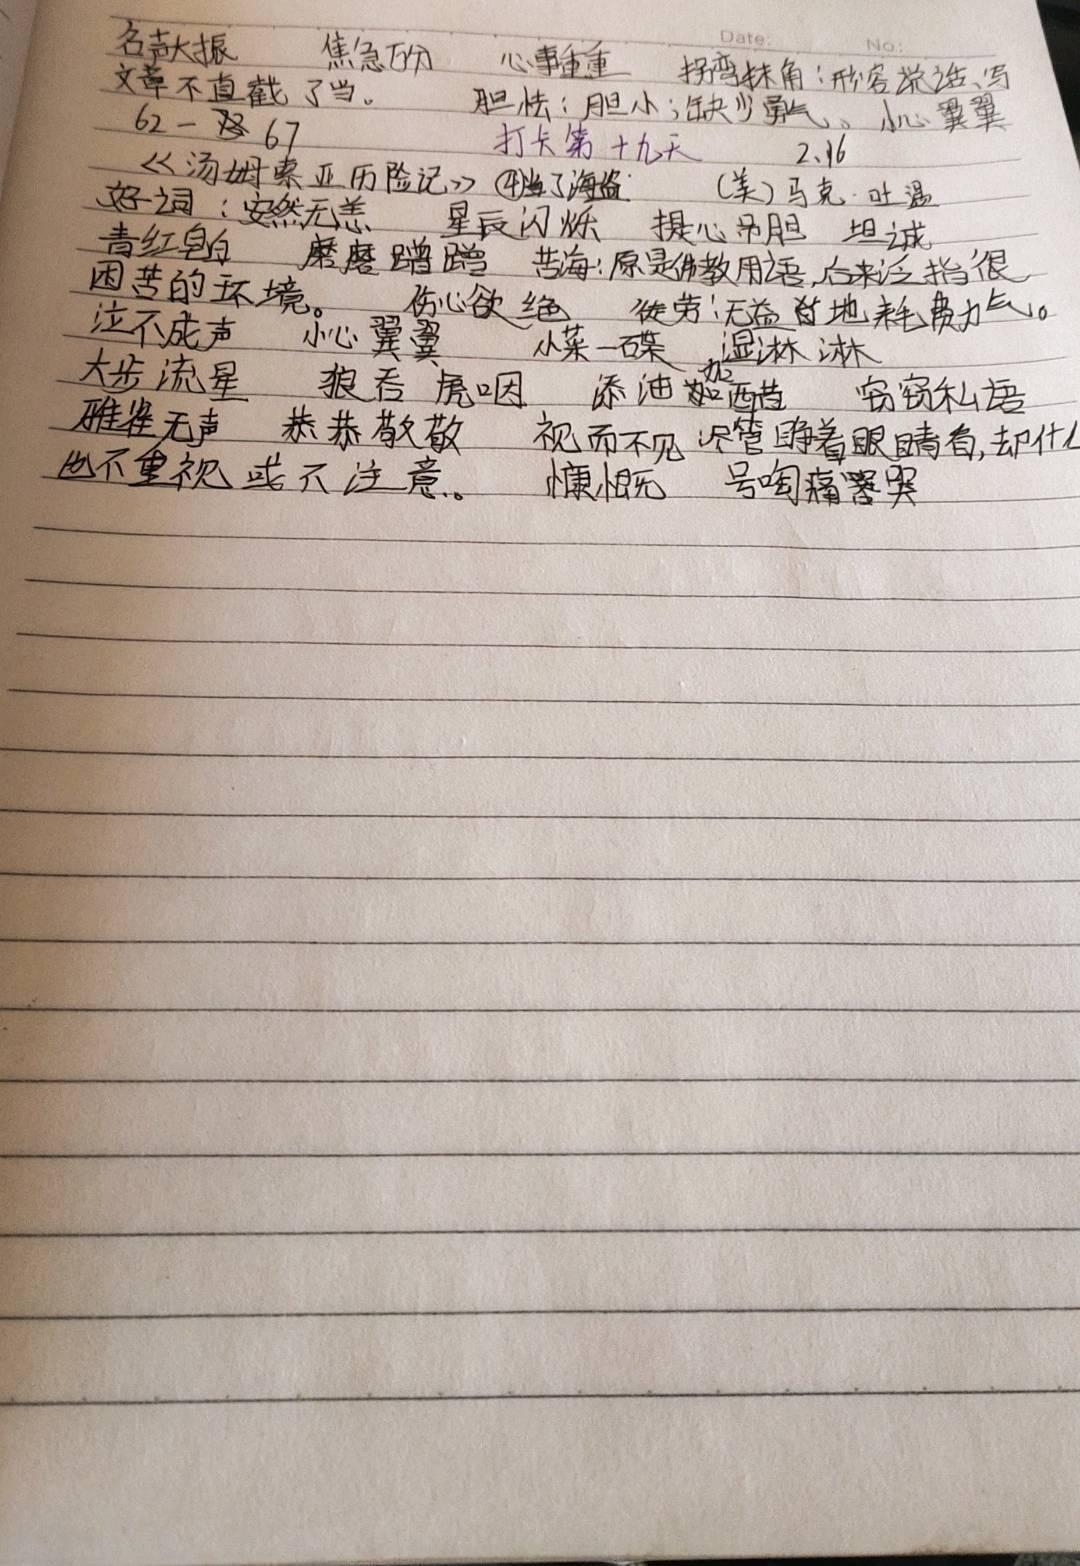 Date: No:
名声大振 焦急万分 心事重重 拐弯抹角：形容说话、写
文章不直截了当。 胆怯：胆小；缺少勇气。 小心翼翼
62-67
打卡第十九天 2.16
《汤姆索亚历险记》④当了海盗 (美)马克·吐温
好词：安然无恙 星辰闪烁 提心吊胆 坦诚
青红皂白 磨磨蹭蹭 苦海：原是佛教用语，后来泛指很
困苦的环境。 伤心欲绝 徒劳：无益地耗费力气。
泣不成声 小心翼翼 小菜一碟 湿淋淋
大步流星 狼吞虎咽 添油加醋 窃窃私语
雅雀无声 恭恭敬敬 视而不见：尽管睁着眼睛看，却什么
也不重视或不注意。 慷慨 号啕痛哭